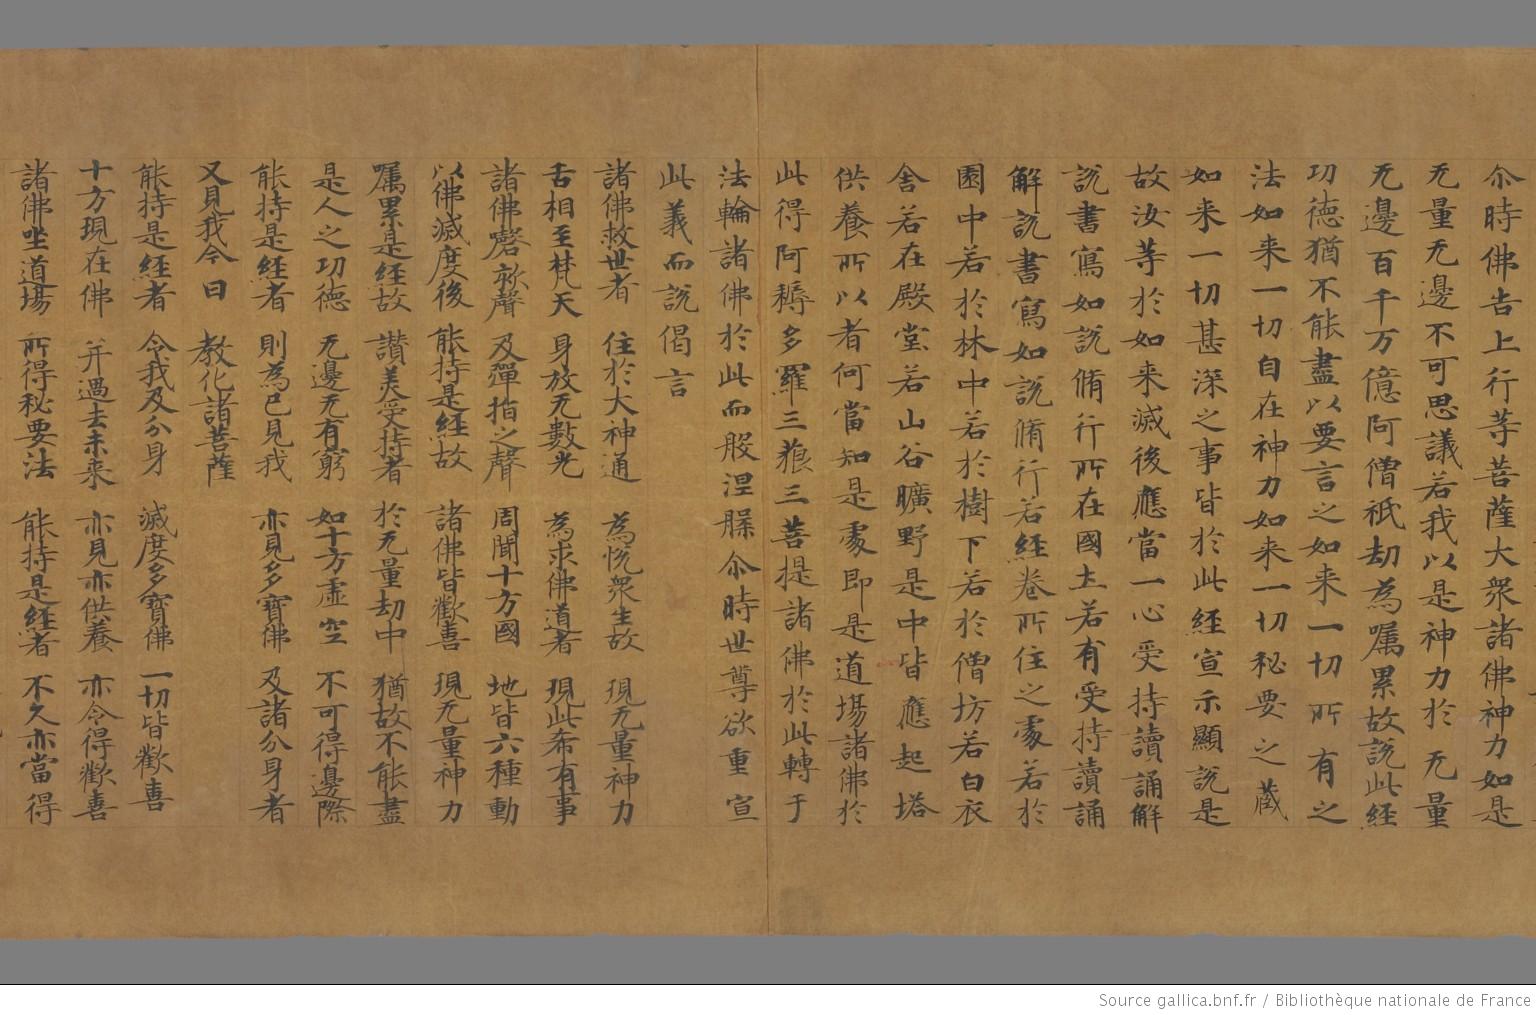 尒時佛告上行等菩薩大衆諸佛神力如是
无量无邊不可思議若我以是神力於无量
无邊百千万億阿僧祇劫為嘱累故說此經
功德猶不能盡以要言之如来一切所有之
法如来一切自在神力如来一切秘要之藏
如来一切甚深之事皆於此經宣示顯說是
故汝等於如来滅後應當一心受持讀誦解
說書寫如說脩行所在國土若有受持讀誦
解說書寫如說脩行若經卷所住之處若於
園中若於林中若於樹下若於僧坊若白衣
舍若在殿堂若山谷曠野是中皆應起塔
供養所以者何當知是處即是道場諸佛於
此得阿耨多羅三藐三菩提諸佛於此轉于
法輪諸佛於此而般涅槃尒時世尊欲重宣
此義而說偈言
諸佛救世者 住於大神通 為悅衆生故 現无量神力
舌相至梵天 身放无數光 為求佛道者 現此希有事
諸佛謦欬聲 及彈指之聲 周聞十方國 地皆六種動
以佛滅度後 能持是經故 諸佛皆歡喜 現无量神力
嘱累是經故 讚美受持者 於无量劫中 猶故不能盡
是人之功德 无邊无有窮 如十方虛空 不可得邊際
能持是經者 則為已見我 亦見多寶佛 及諸分身者
又見我今日 教化諸菩薩
能持是經者 令我及分身 滅度多寶佛 一切皆歡喜
十方現在佛 并過去未来 亦見亦供養 亦令得歡喜
諸佛坐道場 所得秘要法 能持是經者 不久亦當得
Source gallica.bnf.fr / Bibliothèque nationale de France